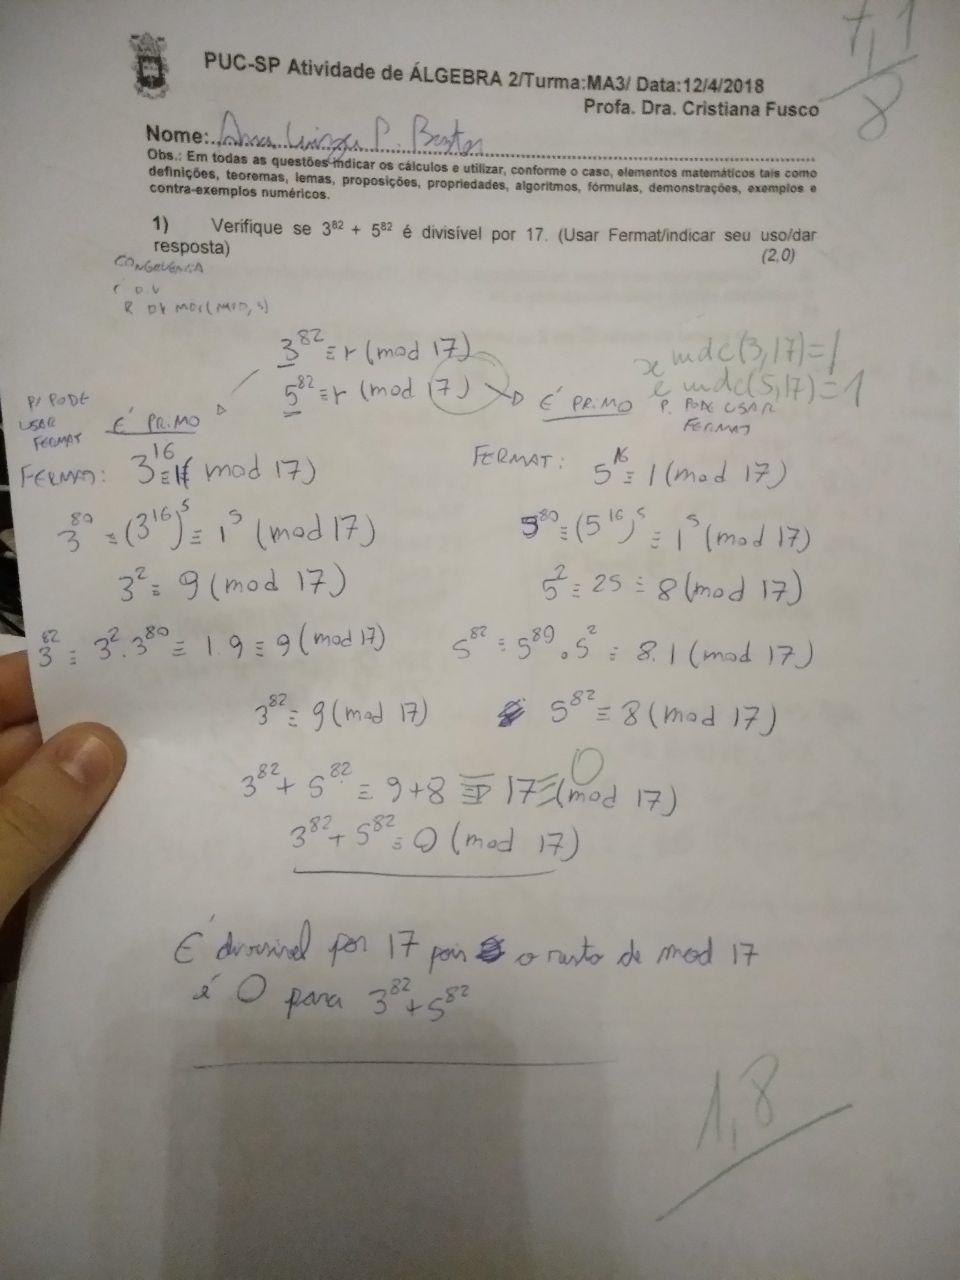 7,1
8
PUC-SP Atividade de ÁLGEBRA 2/Turma:MA3/ Data:12/4/2018
Profa. Dra. Cristiana Fusco
Nome:
Obs.: Em todas as questões indicar os cálculos e utilizar, conforme o caso, elementos matemáticos tais como
definições, teoremas, lemas, proposições, propriedades, algoritmos, fórmulas, demonstrações, exemplos e
contra-exemplos numéricos.
1) Verifique se 3⁸² + 5⁸² é divisível por 17. (Usar Fermat/indicar seu uso/dar
resposta) (2,0)
CONGRUÊNCIA
3⁸² ≡ r (mod 17)
mdc(3,17)=1
5⁸² ≡ r (mod 17) É PRIMO
e mdc(5,17)=1
P/ PODE USAR FERMAT É PRIMO
P. PODE USAR FERMAT
FERMAT: 3¹⁶ ≡ 1 (mod 17) FERMAT: 5¹⁶ ≡ 1 (mod 17)
3⁸⁰ ≡ (3¹⁶)⁵ ≡ 1⁵ (mod 17) 5⁸⁰ ≡ (5¹⁶)⁵ ≡ 1⁵ (mod 17)
3² ≡ 9 (mod 17) 5² ≡ 25 ≡ 8 (mod 17)
3⁸² ≡ 3².3⁸⁰ ≡ 1.9 ≡ 9 (mod 17) 5⁸² ≡ 5⁸⁰.5² ≡ 8.1 (mod 17)
3⁸² ≡ 9 (mod 17) 5⁸² ≡ 8 (mod 17)
3⁸² + 5⁸² ≡ 9+8 ≡ 17 ≡ 0 (mod 17)
3⁸² + 5⁸² ≡ 0 (mod 17)
É divisível por 17 pois o resto de mod 17
é 0 para 3⁸² + 5⁸²
1,8